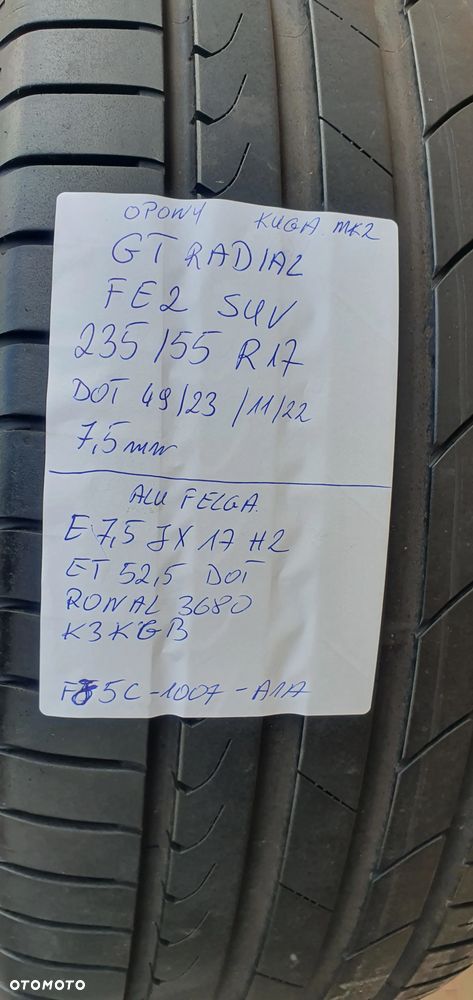 OPONY KUGA MK2
GT RADIAL
FE2 SUV
235/55 R17
DOT 49/23 /11/22
7,5mm
ALU FELGA
E 7,5 JX 17 H2
ET 52,5 DOT
RONAL 3680
K3KGB
F5C-1007-A1A
OTOMOTO